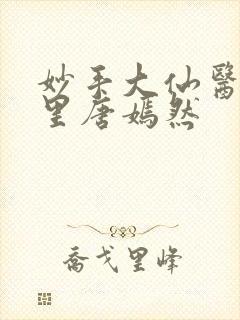 妙手大仙醫
里唐嫣然
喬戈里峰